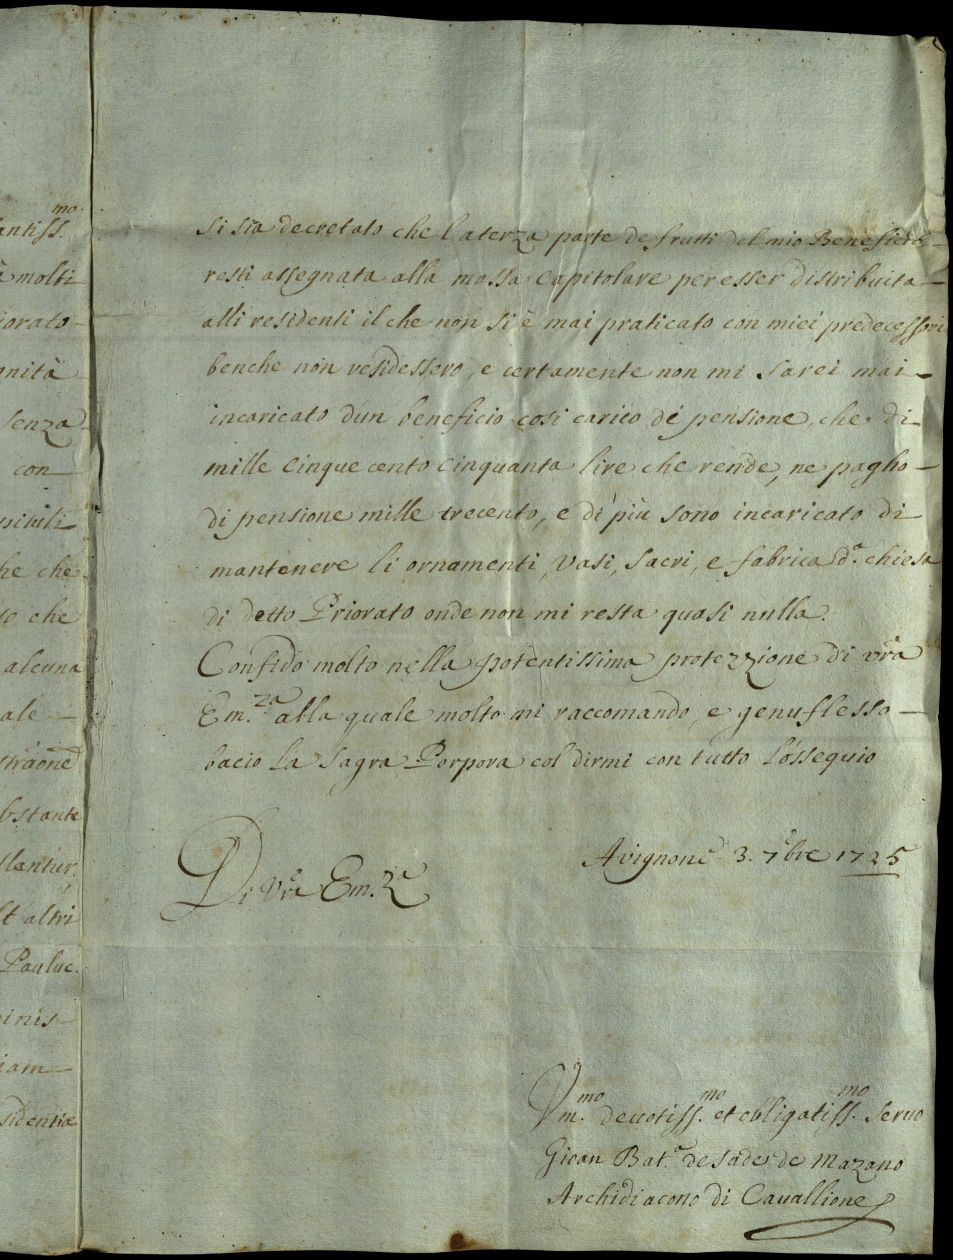 si sia decretato che la terza parte de frutti del mio Beneficio
resti assegnata alla massa Capitolare per esser distribuita
alli residenti il che non si è mai praticato con miei predecessori
benche non residessero, e certamente non mi sarei mai
incaricato d'un beneficio così carico di pensione, che di
mille cinque cento cinquanta lire che rende, ne pagho
di pensione mille trecento, e di più sono incaricato di
mantenere li ornamenti, vasi, sacri, e fabrica d.ª chiesa
di detto Priorato onde non mi resta quasi nulla.
Confido molto nella potentissima protezzione di Vrã
Em.za alla quale molto mi raccomando, e genuflesso
bacio la Sagra Porpora col dirmi con tutto l'ossequio
Avignone 3. 7bre 1725
Di Vrã Em.za
Vm.mo deuotiss.mo et obligatiss.mo seruo
Gioan Bat.ª de Sade de Mazano
Archidiacono di Cauallione
antiss.mo
molti
iorato
gnità
senza
con
nihili
he che
to che
alcuna
ale
strãone
bstante
slantur
altri
Pauluc.
inis
iam
sidentiæ